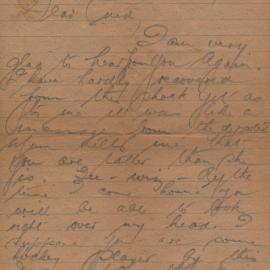 Dear Enid
I am very
glad to hear from you again.
I have hardly recovered
from the shock yet as
to me it was like a
message from the departed
Mum tells me that
you are taller than she
is. Gee - wiz - by the
time I come home you
will be able to look
right over my head. I
suppose you are some
hockey player by this